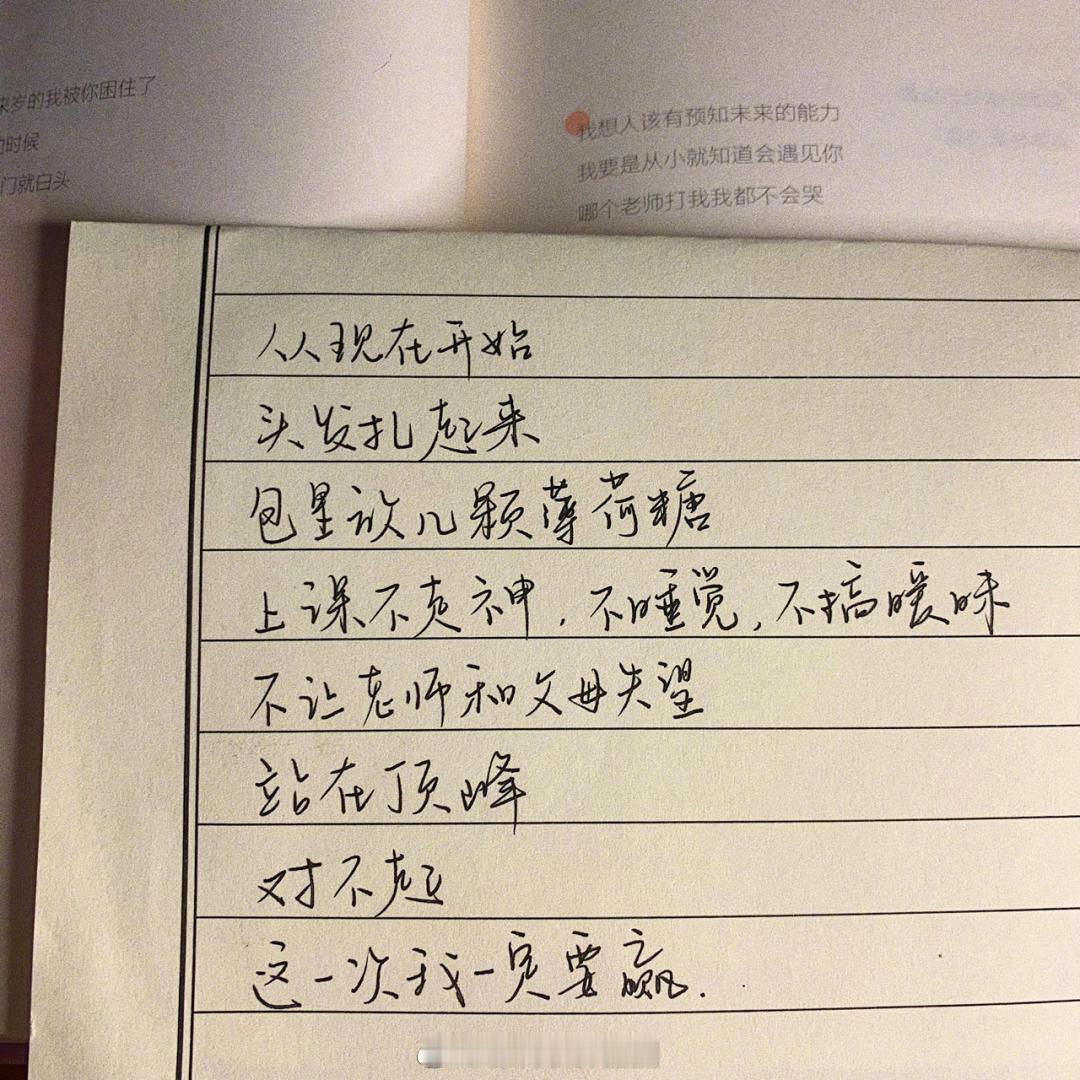 来岁的我被你困住了
的时候
门就白头
我想人该有预知未来的能力
我要是从小就知道会遇见你
哪个老师打我我都不会哭
从现在开始
头发扎起来
包里放几颗薄荷糖
上课不走神，不睡觉，不搞暧昧
不让老师和父母失望
站在顶峰
对不起
这一次我一定要赢.